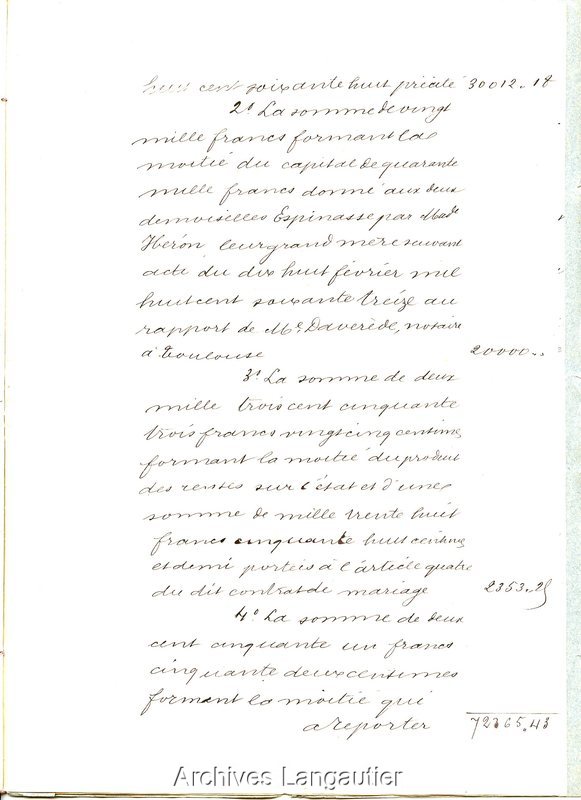 huit cent soixante huit précité 30012.18
2º La somme de vingt
mille francs formant la
moitié du capital de quarante
mille francs donné aux deux
demoiselles Espinasse par Made
Héron leur grand mère suivant
acte du dix huit février mil
huit cent soixante treize au
rapport de Me Daverède, notaire
à Toulouse 20000..
3º La somme de deux
mille trois cent cinquante
trois francs vingt cinq centimes
formant la moitié du produit
des rentes sur l'état et d'une
somme de mille trente huit
francs cinquante huit centimes
et demi portés à l'article quatre
du dit contrat de mariage 2353.25
4º La somme de deux
cent cinquante un francs
cinquante deux centimes
formant la moitié qui
a reporter 72365.43
Archives Langautier